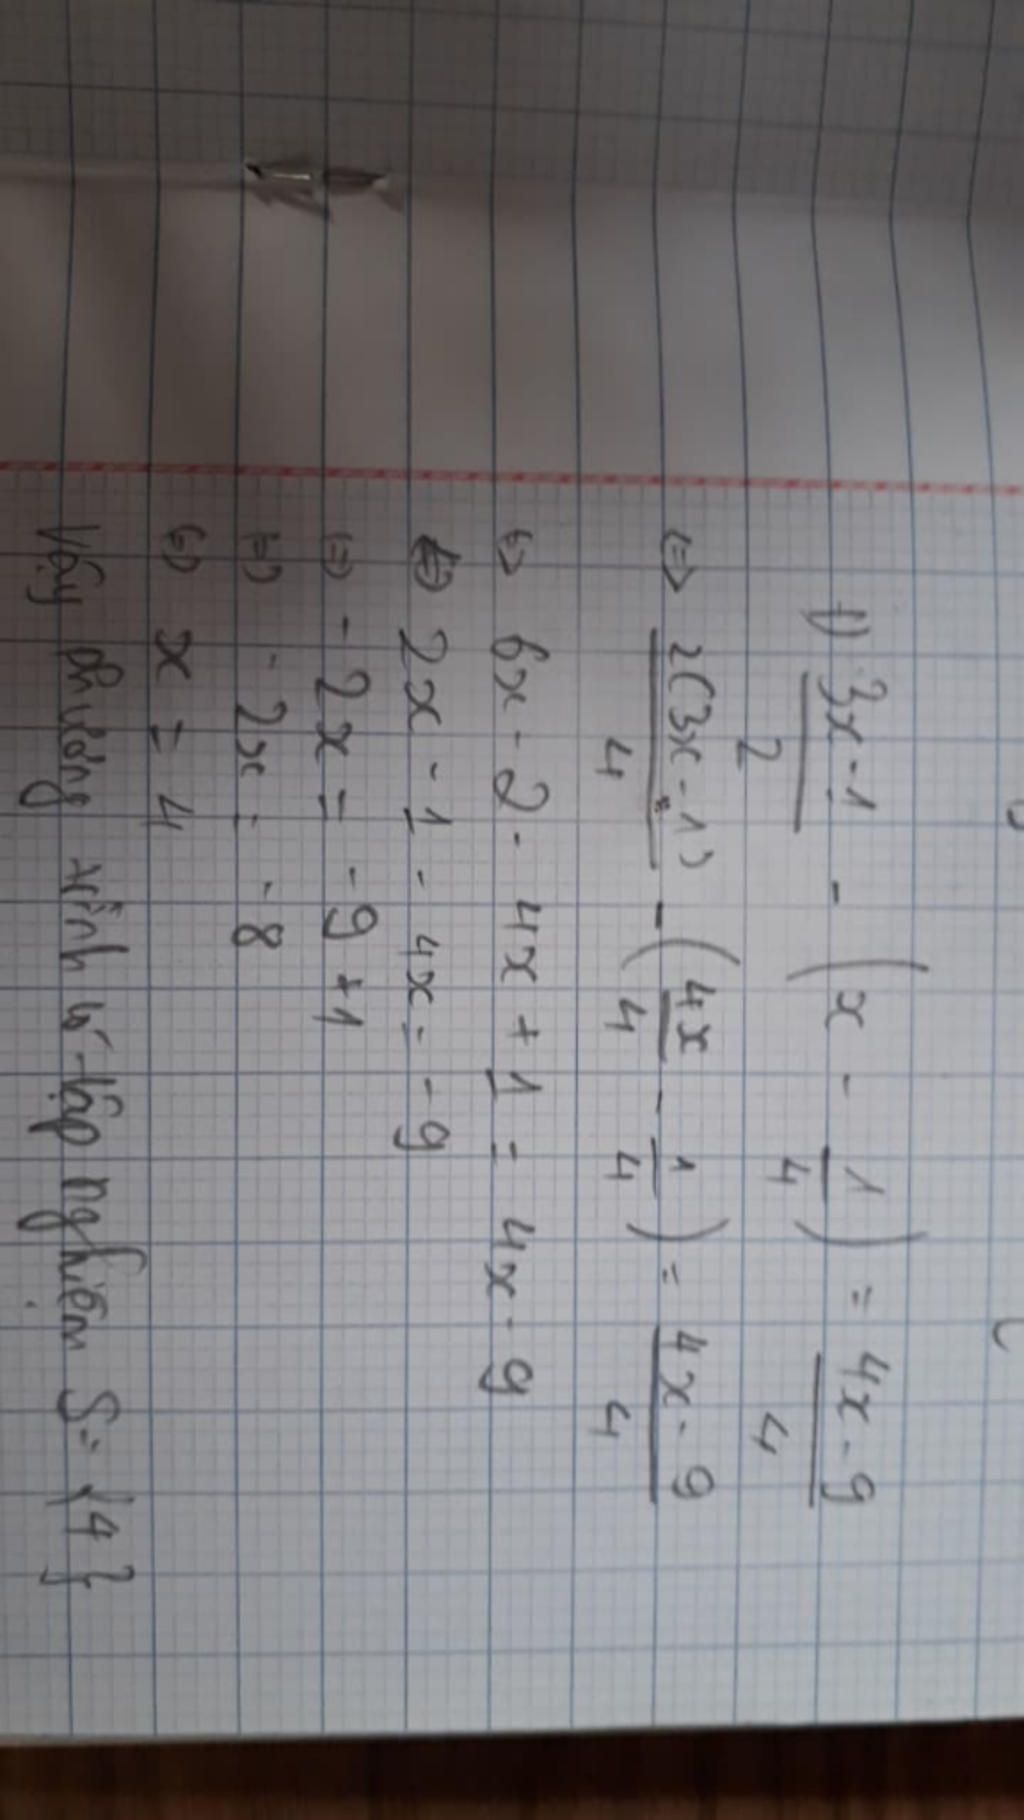 f) 3x-1/2 - (x - 1/4) = 4x-9/4
<=> 2(3x-1)/4 - (4x/4 - 1/4) = 4x-9/4
<=> 6x - 2 - 4x + 1 = 4x - 9
<=> 2x - 1 - 4x = -9
<=> -2x = -9 + 1
<=> -2x = -8
<=> x = 4
Vậy phương trình có tập nghiệm S = {4}